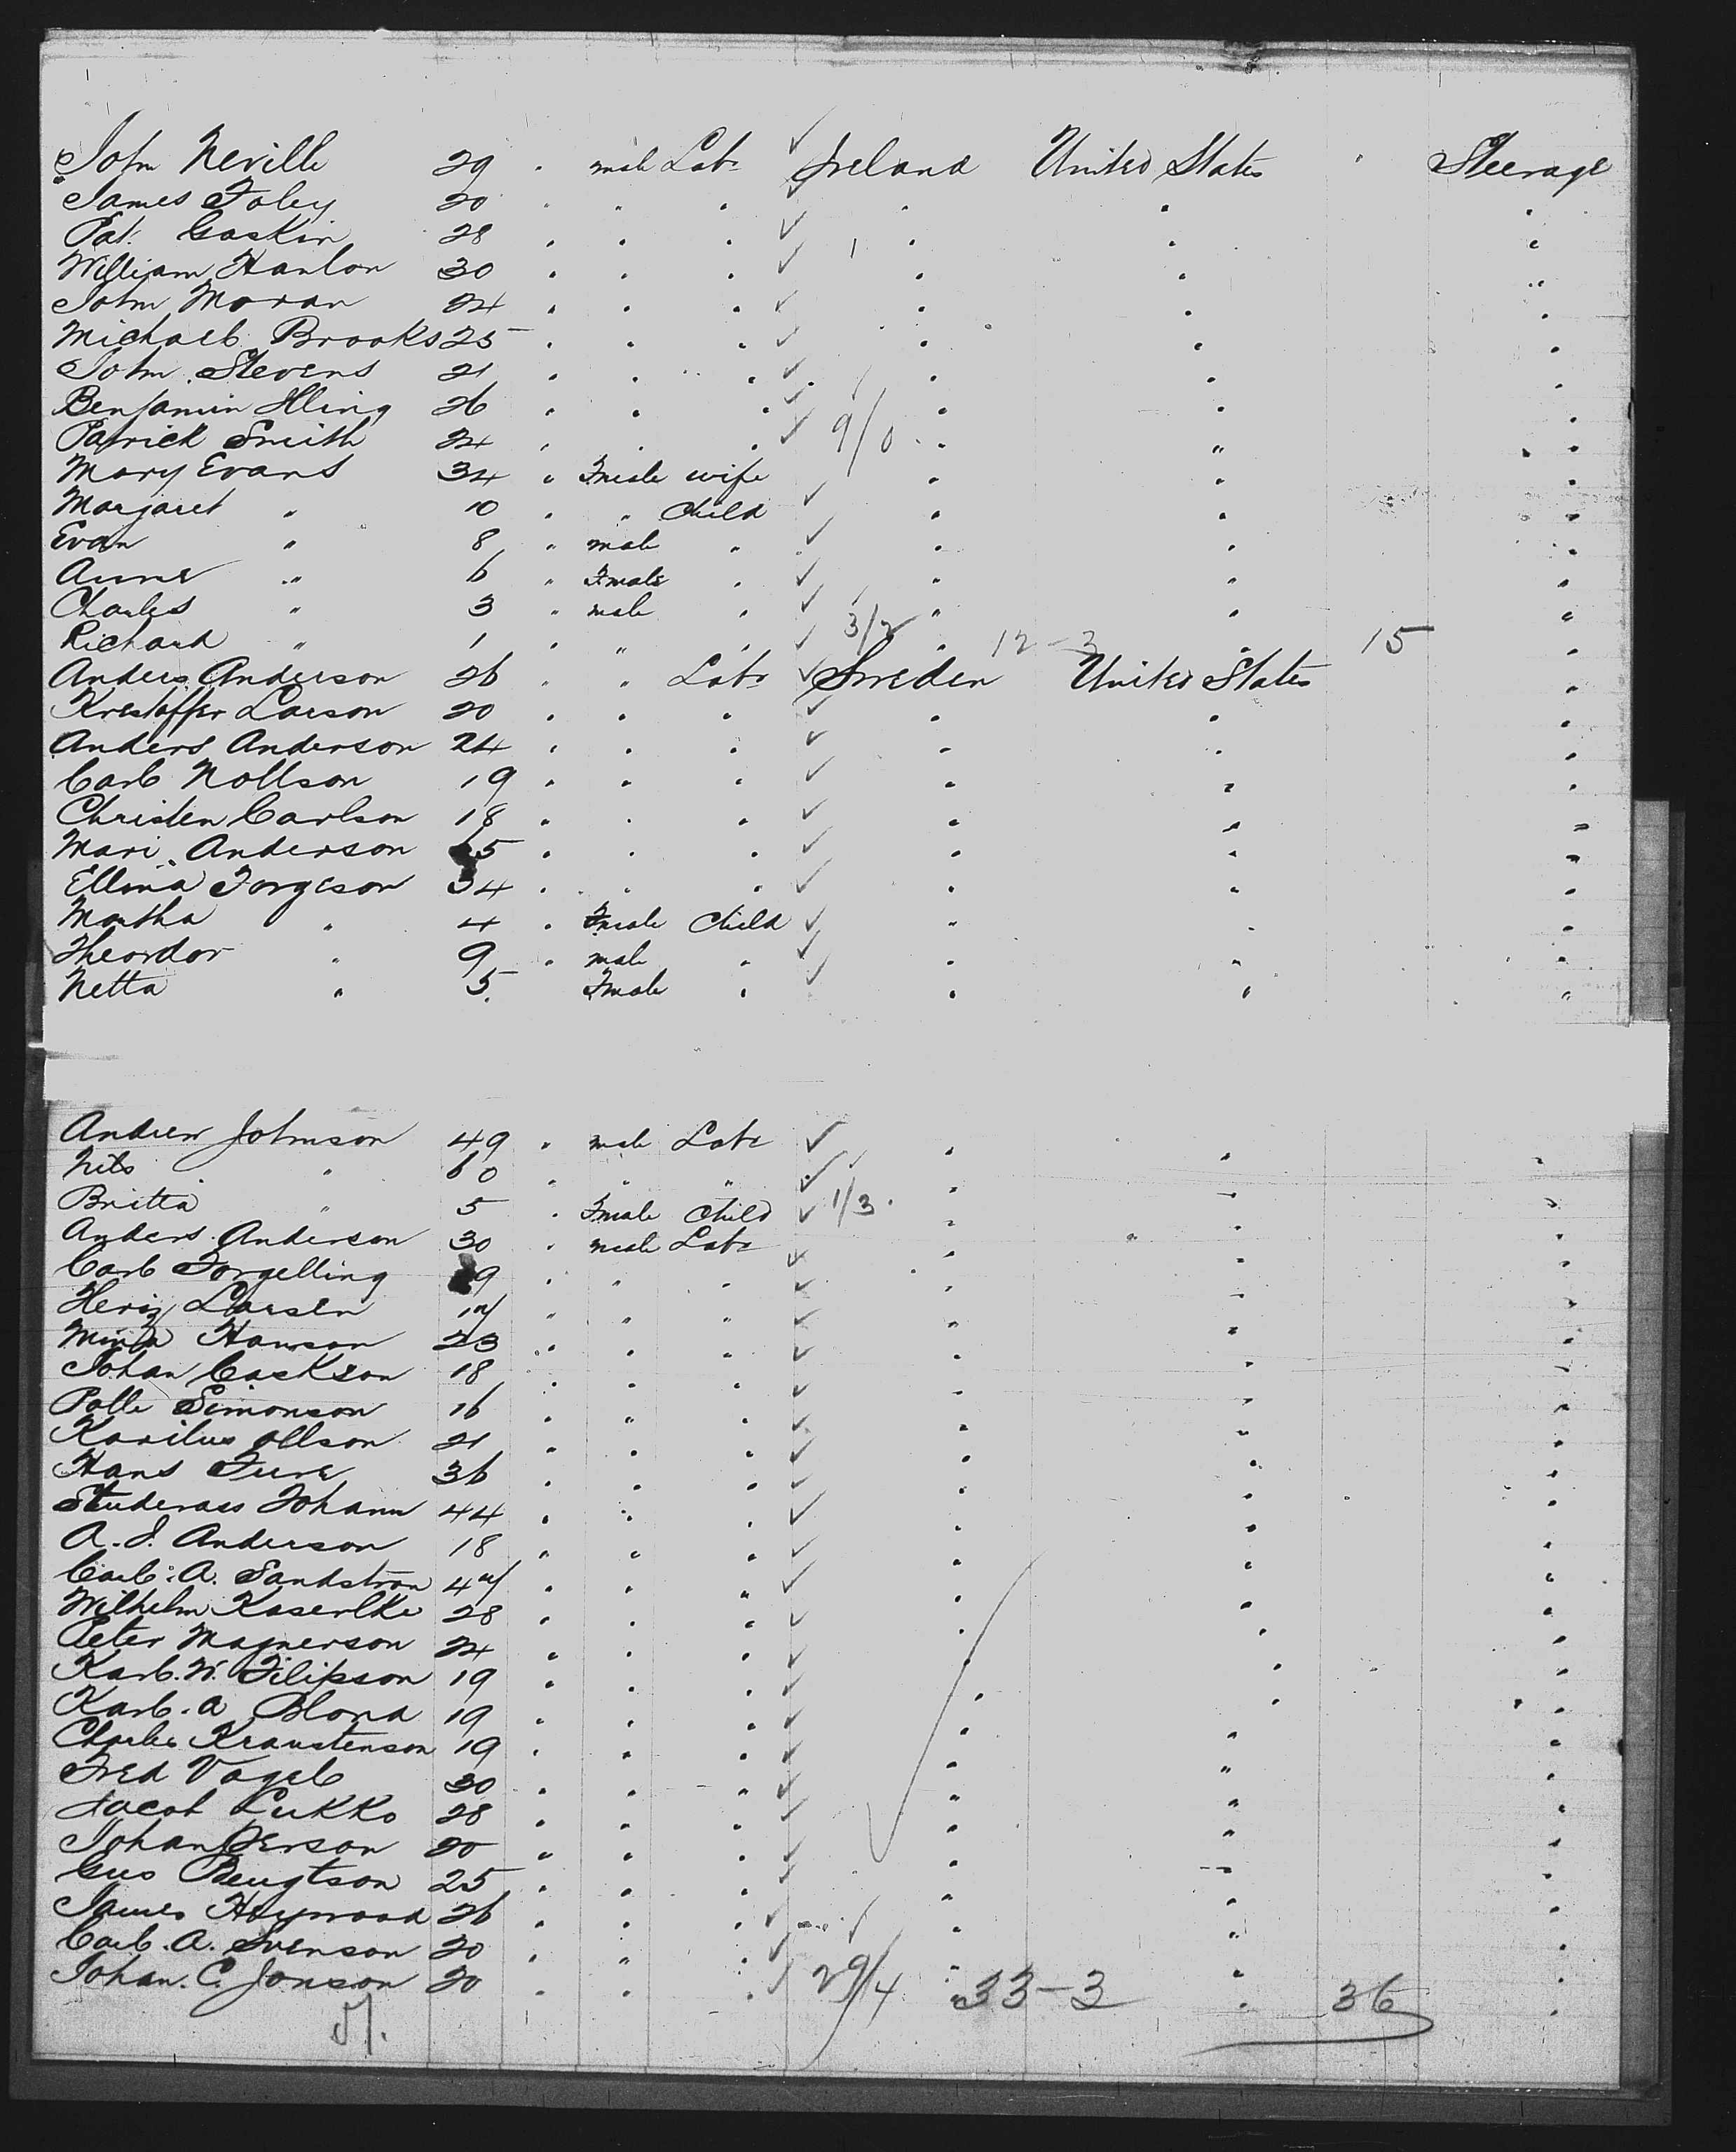 John Neville 29 " male Labr ✓ Ireland United States " Steerage
James Foley 20 " " " ✓ " " "
Pat. Gaskin 28 " " " ✓ " " "
William Hanlon 30 " " " ✓ " " "
John Moran 24 " " " ✓ " " "
Michael Brooks 25 " " " ✓ " " "
John Stevens 21 " " " ✓ " " "
Benjamin Illing 26 " " " ✓ " " "
Patrick Smith 24 " " " ✓ 9/0 " " "
Mary Evans 34 " Fmale wife " " "
Margaret " 10 " " Child ✓ " " "
Evan " 8 " male " ✓ " " "
Anne " 6 " Fmale " ✓ " " "
Charles " 3 " male " ✓ " " "
Richard " 1 " " " ✓ 3/2 " 12-3 " 15 "
Anders Anderson 26 " " Labr ✓ Sweden United States "
Krestoffer Larson 20 " " " ✓ " " "
Anders Anderson 24 " " " ✓ " " "
Carl Nollson 19 " " " ✓ " " "
Christen Carlson 18 " " " ✓ " " "
Mari Anderson " " " ✓ " " "
Ellina Forgeson 34 " " " ✓ " " "
Martha " 4 " Fmale Child ✓ " " "
Theordor " 9 " male " ✓ " " "
Netta " 5 Fmale " ✓ " " "
Andrew Johnson 49 " male Labr ✓ " " "
Nils " 60 " " " ✓ " " "
Britta " 5 " Fmale Child ✓ 1/3 " " "
Anders Anderson 30 " male Labr ✓ " " "
Carl Forgelling " " " ✓ " " "
Larsen " " " ✓ " " "
Hanson 23 " " " ✓ " " "
Johan Caskson 18 " " " ✓ " " "
Polle Simonson 16 " " " ✓ " " "
Karilus Ollson 21 " " " ✓ " " "
Hans Ture 36 " " " ✓ " " "
Studerass Johann 44 " " " ✓ " " "
A. J. Anderson 18 " " " ✓ " " "
Carl. A. Sandstron " " " ✓ " " "
Wilhelm 28 " " " ✓ " " "
Peter Magnerson 24 " " " ✓ " " "
Karl. W. Filipson 19 " " " ✓ " " "
Karl. A Blond 19 " " " ✓ " " "
Charles Kraustenson 19 " " " ✓ " " "
Fred Vagel 30 " " " ✓ " " "
Jacob Lukko 28 " " " ✓ " " "
Johan Person 20 " " " ✓ " " "
Gus Bengtson 25 " " " ✓ " " "
James Heywood 26 " " " ✓ " " "
Carl. A. Svenson 20 " " " ✓ " " "
Johan. C. Jonson 20 " " " ✓ 29/4 " 33-3 " 36 "
51.